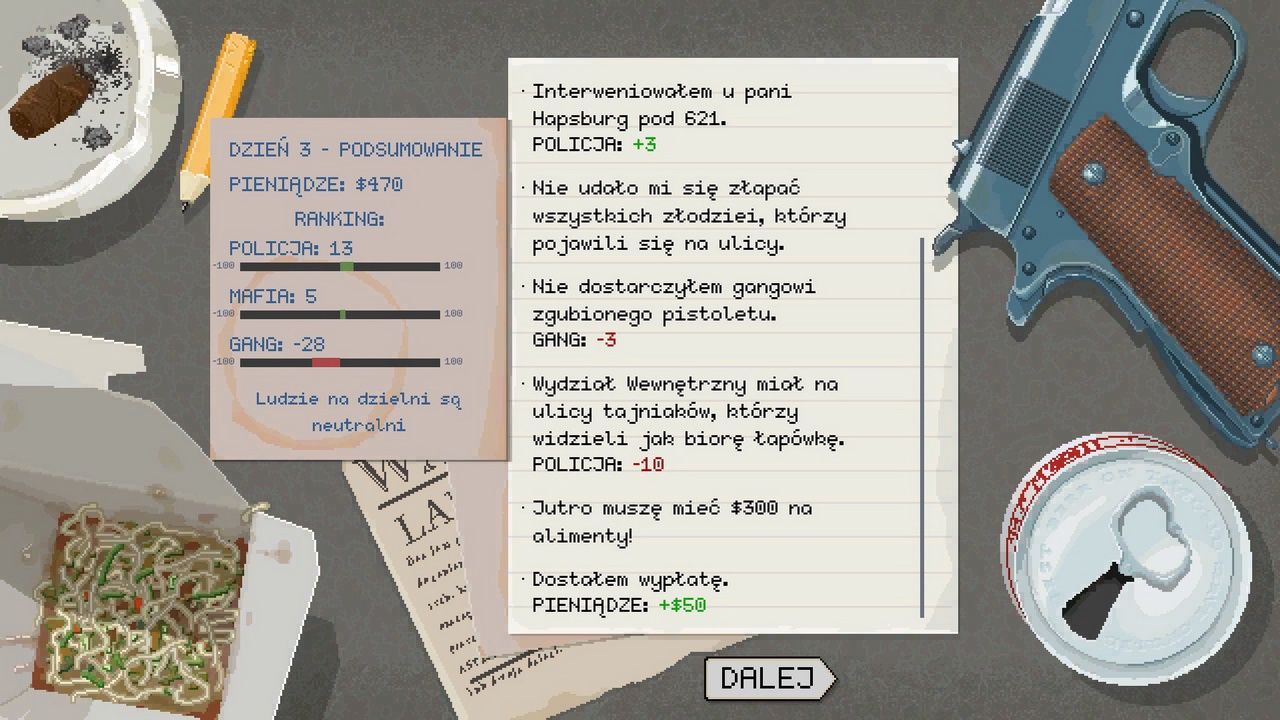 DZIEŃ 3 - PODSUMOWANIE
PIENIĄDZE: $470
RANKING:
POLICJA: 13
-100 100
MAFIA: 5
-100 100
GANG: -28
-100 100
Ludzie na dzielni są
neutralni
· Interweniowałem u pani
Hapsburg pod 621.
POLICJA: +3
· Nie udało mi się złapać
wszystkich złodziei, którzy
pojawili się na ulicy.
· Nie dostarczyłem gangowi
zgubionego pistoletu.
GANG: -3
· Wydział Wewnętrzny miał na
ulicy tajniaków, którzy
widzieli jak biorę łapówkę.
POLICJA: -10
· Jutro muszę mieć $300 na
alimenty!
· Dostałem wypłatę.
PIENIĄDZE: +$50
DALEJ